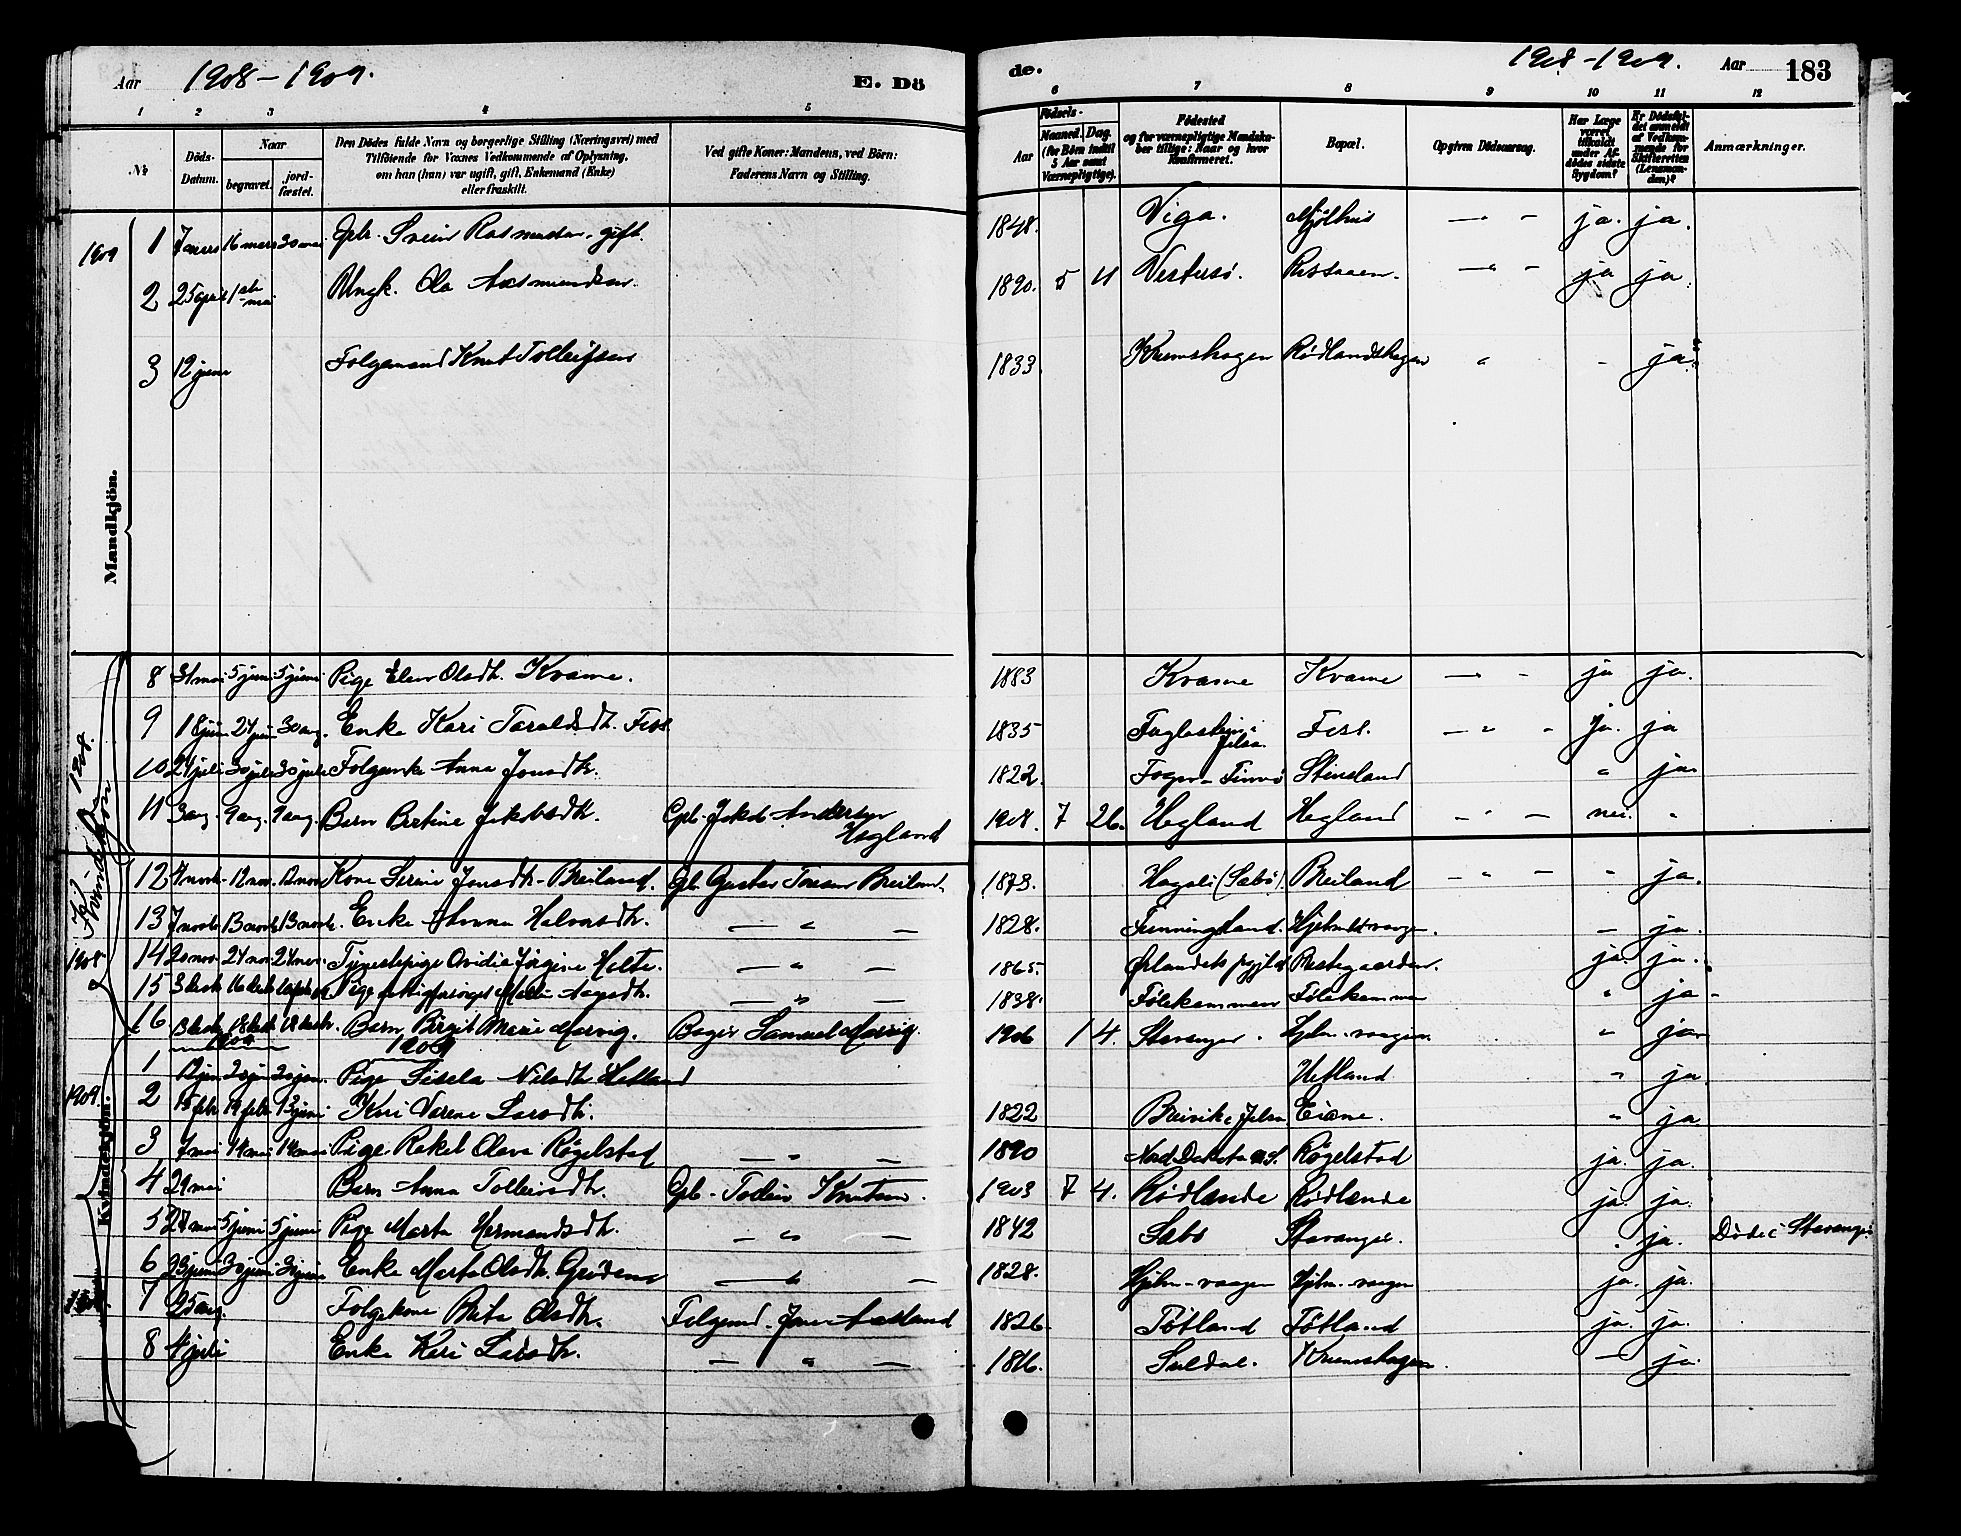 Aar 1908-1909. E. Dö
de. 1908-1909. Aar 183
1 2 3 4 5
6 7 8 9 10 11 12
№
Döds-Datum.
Naar
begravet.
jord-fæstet.
Den Dödes fulde Navn og borgerlige Stilling (Næringsvei) med
Tilföiende for Voxnes Vedkommende af Oplysning,
om han (hun) var ugift, gift, Enkemand (Enke)
eller fraskilt.
Ved gifte Koner: Mandens, ved Börn:
Faderens Navn og Stilling.
Födsels-
Aar
Maaned. Dag
(for Börn indtil
5 Aar samt
Værnepligtige).
Födested
og for værnepligtige Mandska-
ber tillige: Naar og hvor
Konfirmeret.
Bopæl.
Opgiven Dödsaarsag.
Har Læge
været
tilkaldt
under Af-
dödes sidste
Sygdom?
Er Dödsfal-
det anmeldt
af Vedkom-
mende for
Skifteretten
(Lensman-
den)?
Anmærkninger.
Mandkjön.
1909 1 7 mars 16 mars 30 mai. Gbr. Svein Rasmussen gift. 1848. Viga. Mjølhus — " — ja. ja.
2 25 april 1ste mai Ungk. Ola Aasmundsen. 1890. 5 11 Vestersø. — " — ja ja.
3 12 juni Folgemand Knut Tolleifsen 1833. Krumshagen Rødlandshagen " - ja.
1908. Kvindekjøn
8 31 mai 5 juni 5 juni Pige Elen Olsdtr. Kvame. 1883 Kvame Kvame — " - ja ja.
9 18 juni 24 juni 30 aug. Enke Kari Taraldsdtr. Fisl. 1835 i Jelsa. Fisl. — " - ja. ja
10 21 juli 30 juli 30 juli Folgeenke Anna Jonsdtr. 1822. Steinsland " ja
11 3 aug. 9 aug. 9 aug. Barn Bertine Jakobsdtr. Gbr. Jakob Andersen Hegland 1908. 7 26. Hegland Hegland - " - nei. "
12 7 novb. 12 nov. 12 nov Kone Serine Jonsdtr. Breiland. Gbr. Gustav Tonesen Breiland. 1873. Hagali (Sabø). Breiland - " - " ja.
13 7 novb 13 novb 13 novb. Enke Anna Halvorsdtr. — " — 1828. Funningsland. Hjelmelandsvaagen. - ja.
1908 14 20 nov. 24 nov. 24 nov. Tjenestepige Ovidia Jørgine Holte. — " — 1865. Ørlandets prgjld Prestegaarden. ja. ja.
15 3 desb 16 desb Pige Malli Aagesdtr. — " — 1838. Følekammen Følekammen " ja -
16 13 desb 18 desb 18 desbr. Barn Birgit Marie Marvig. Bager Samuel Marvig. 1906 1 4. Stavanger. Hjelm.-vaagen. " ja
1909 1909
1 12 jan 20 jan 20 jan. Pige Sisela Nilsdtr. Hetland Hetland. " ja.
1909. Kvindekjön. 2 15 febr 19 febr 13 juni Kari Verene Larsdtr. 1822 Breivik i Jelsa Eiane. " ja
3 7 mai 14 mai 14 mai Pige Rakel Olava Røgelstad — " — 1890 Nord Dakota A.S. Røgelstad ja. ja.
4 29 mai Barn Anna Tolleivsdtr. Gbr. Tolleiv Knutsen. 1903 7 4. Rødlende Rødlende ja. ja.
5 27 mai 5 juni 5 juni Pige Marta Hermandsdtr. — " — 1842 Sabø Stavanger. . ja. Døde i Stavanger.
6 23 juni 30 juni 30 juni Enke Marta Olsdtr. — " — 1828. Hjelm.-vaagen Hjelm.-vaagen ja. ja.
7 25 aug. Folgekone Brita Olsdtr. Folgemd. 1826. Tøtland Tøtland ja. ja.
8 4 juli Enke Kari Larsdtr. — " — 1816. Suldal. Krumshagen. — ja.